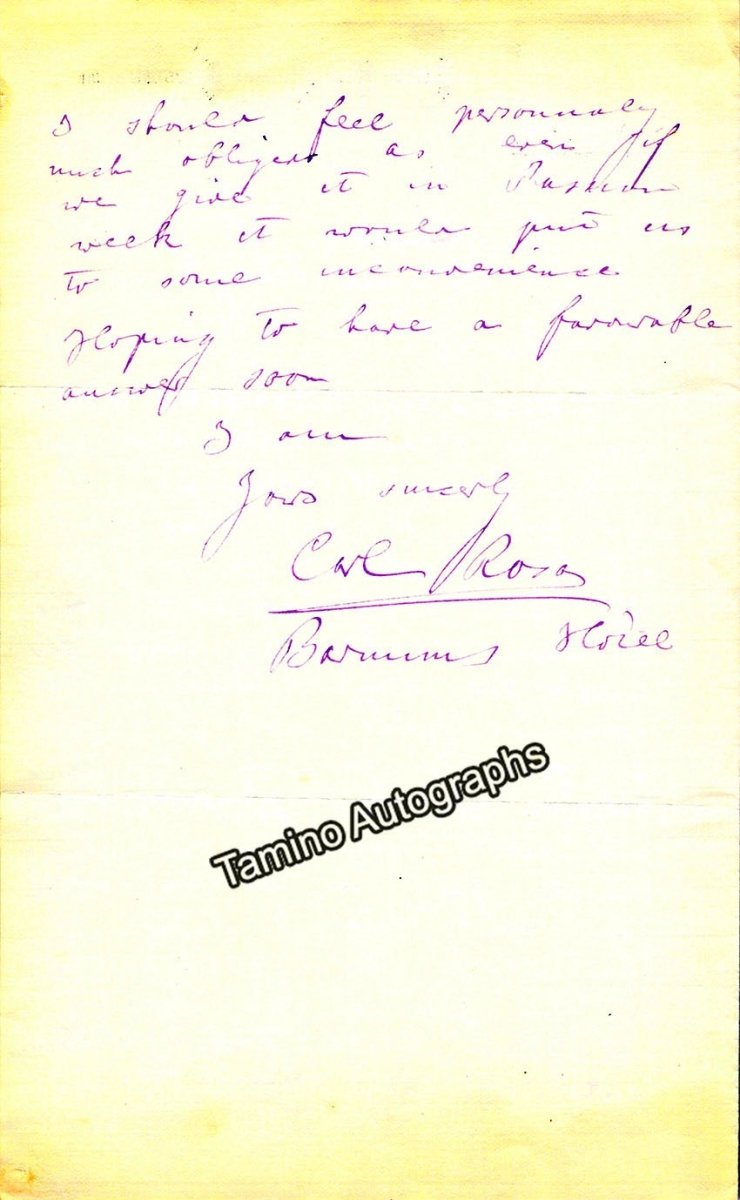 I should feel personnaly
much obliged as even if
we give it in Passion
week it would put us
to some inconvenience
Hoping to have a favourable
answer soon
I am
Yours sincerly
Carl Rosa
Barnums Hotel
Tamino Autographs